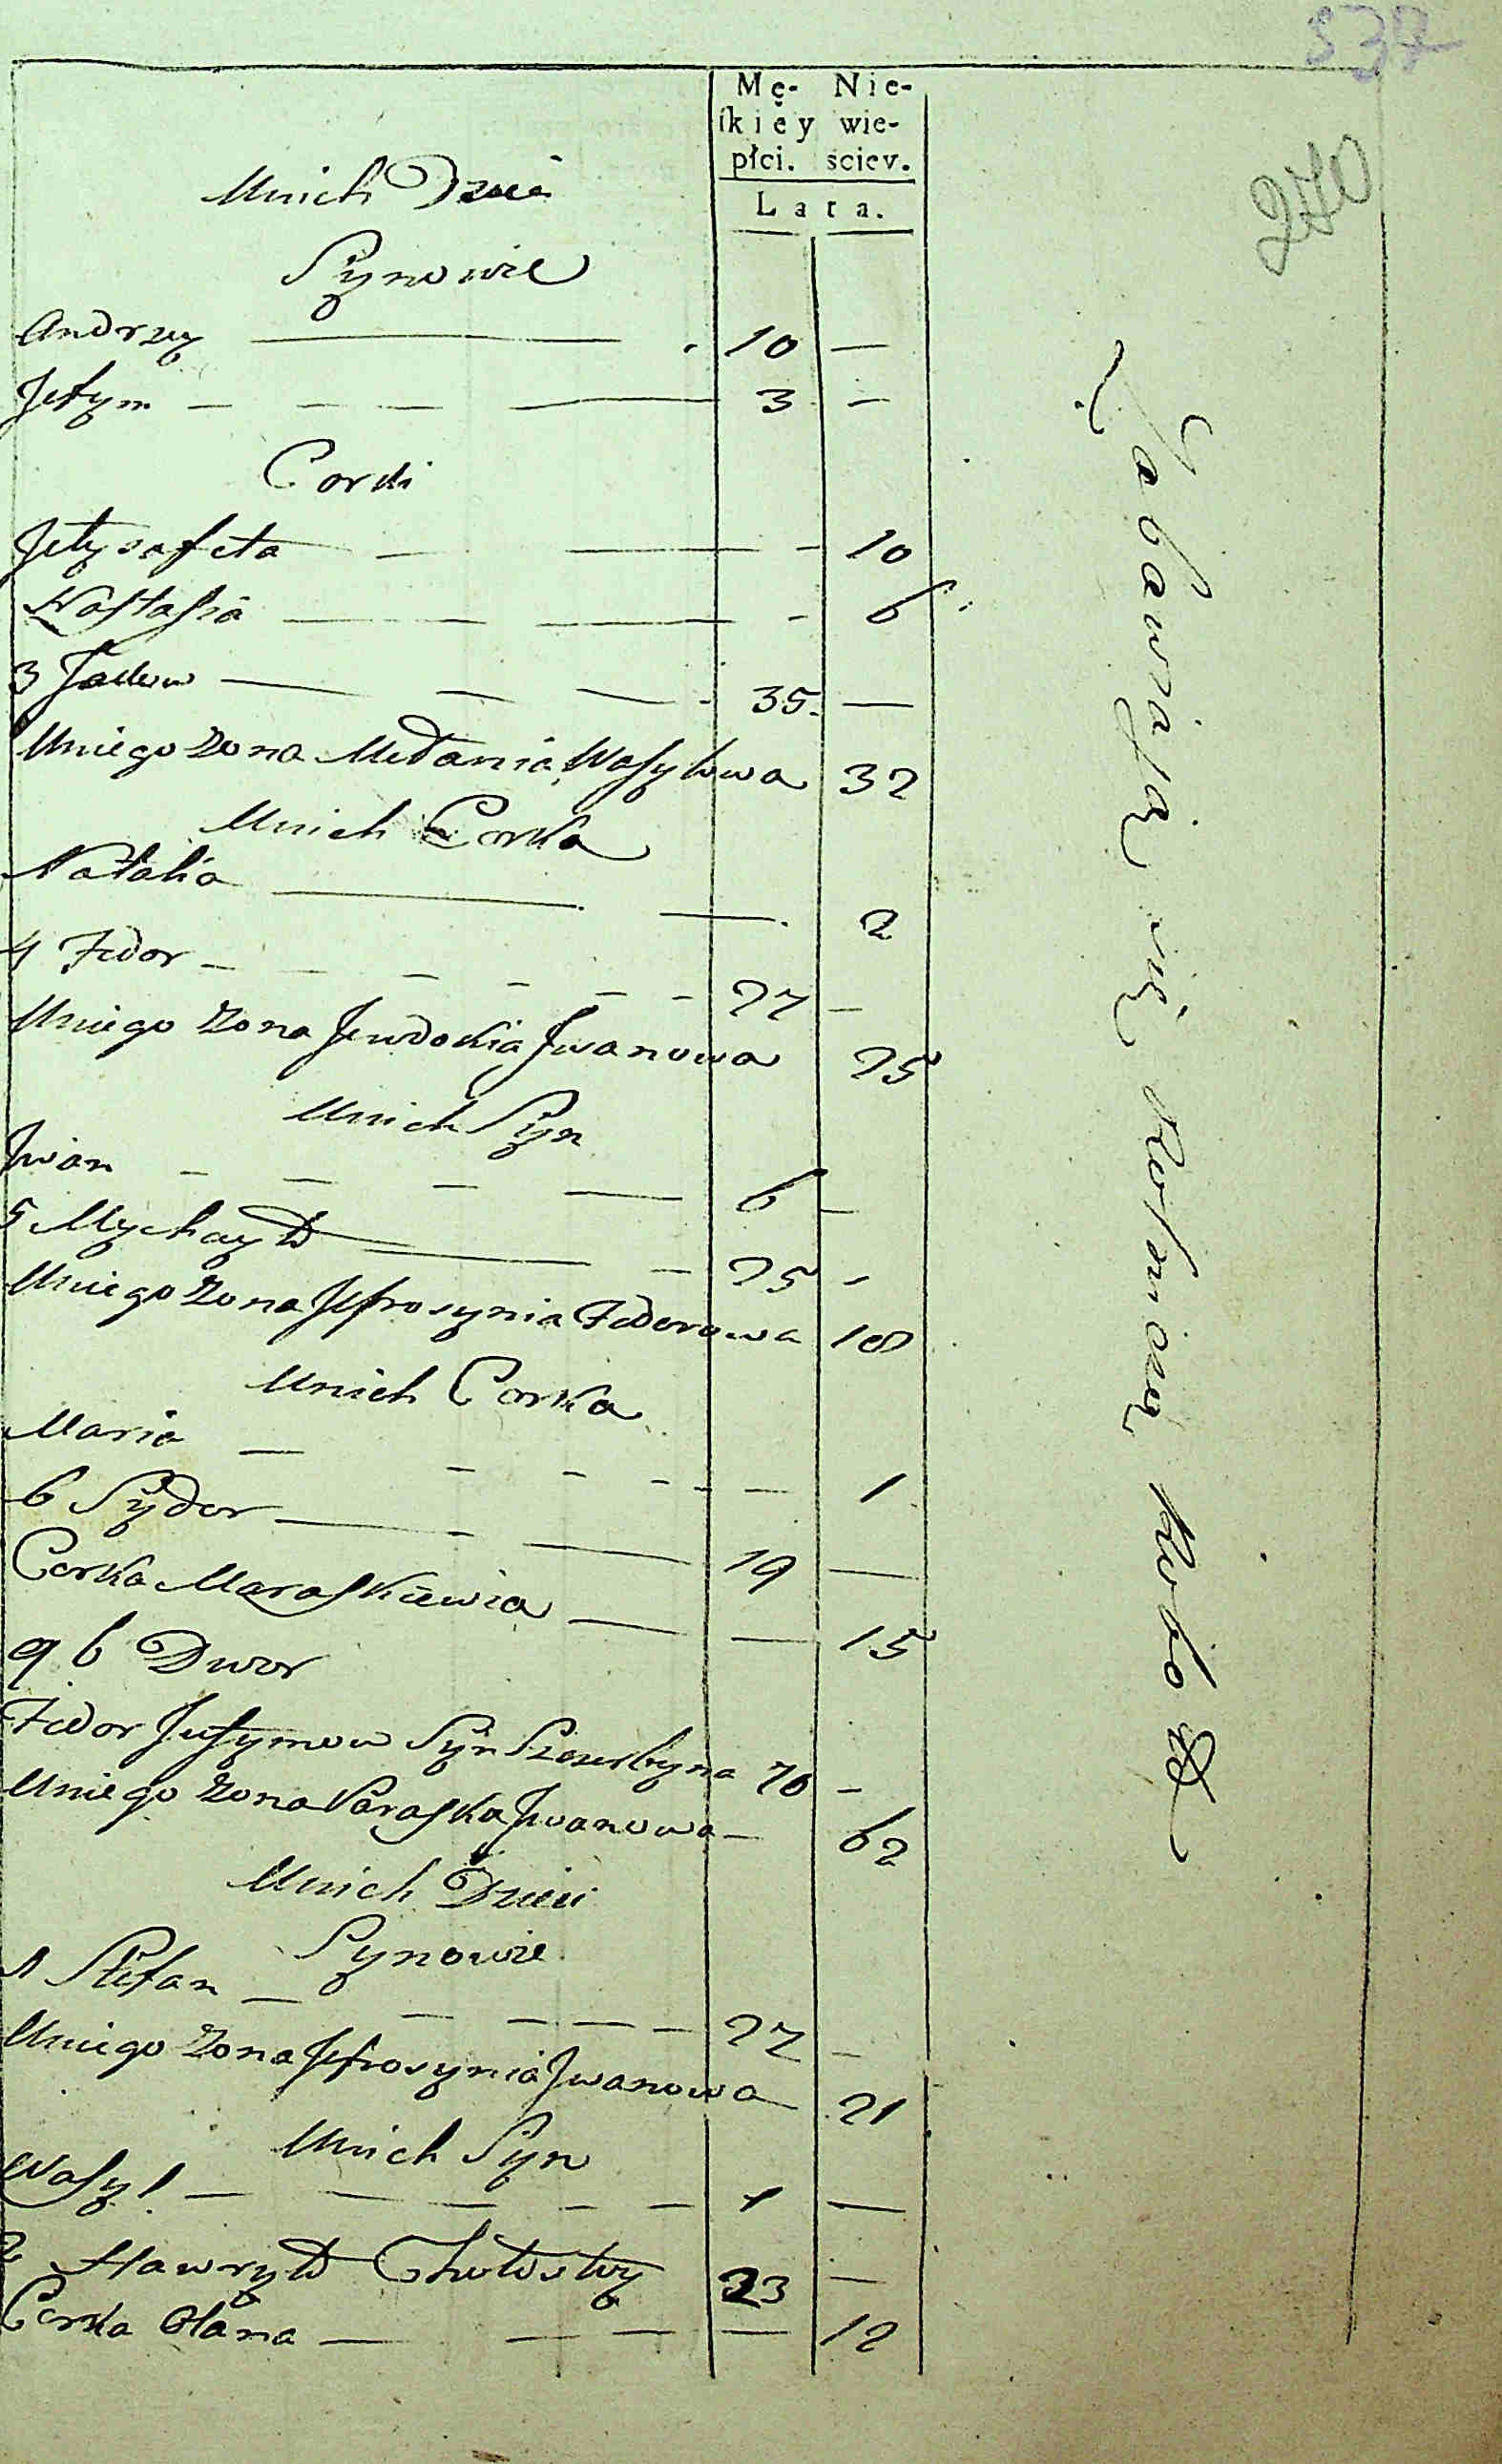 537
270
Mę- Nie-
ſkiéy wie-
płci. ściey.
Lata.
Unich Dzieci
Synowie
Andrzey — . 10 —
Jefym — — — — 3 —
Corki
Jełysafeta — — — 10
Nastasia — — — — 6
3 Jackow — — — 35. —
Uniego Zona Mełania Wasylowa 32
Unich Corka
Natalia — — 2
4 Fedor — — — — — — 27 —
Uniego Zona Jewdokia Jwanowa 25
Unich Syn
Jwan — — — — 6 —
5 Mychayło — — 25 —
Uniego Zona Jefrosynia Fedorowa 18
Unich Corka
Maria — — — — — — 1
6 Sydor — — — 19 —
Corka Maraskiewia — — 15
96 Dwor
Fedor Jefymow Syn Szczerbyna 76 —
Uniego Zona Paraska Jwanowa — 62
Unich Dzieci
Synowie
1 Stefan — — — — — 27 —
Uniego Zona Jefrosynia Jwanowa 21
Unich Syn
Wasyl — — — — — 1 —
2 Hawryło Chołosty 23 —
Corka Ołana — — — — 12
Zabawiaią się Rolniczą Robotą